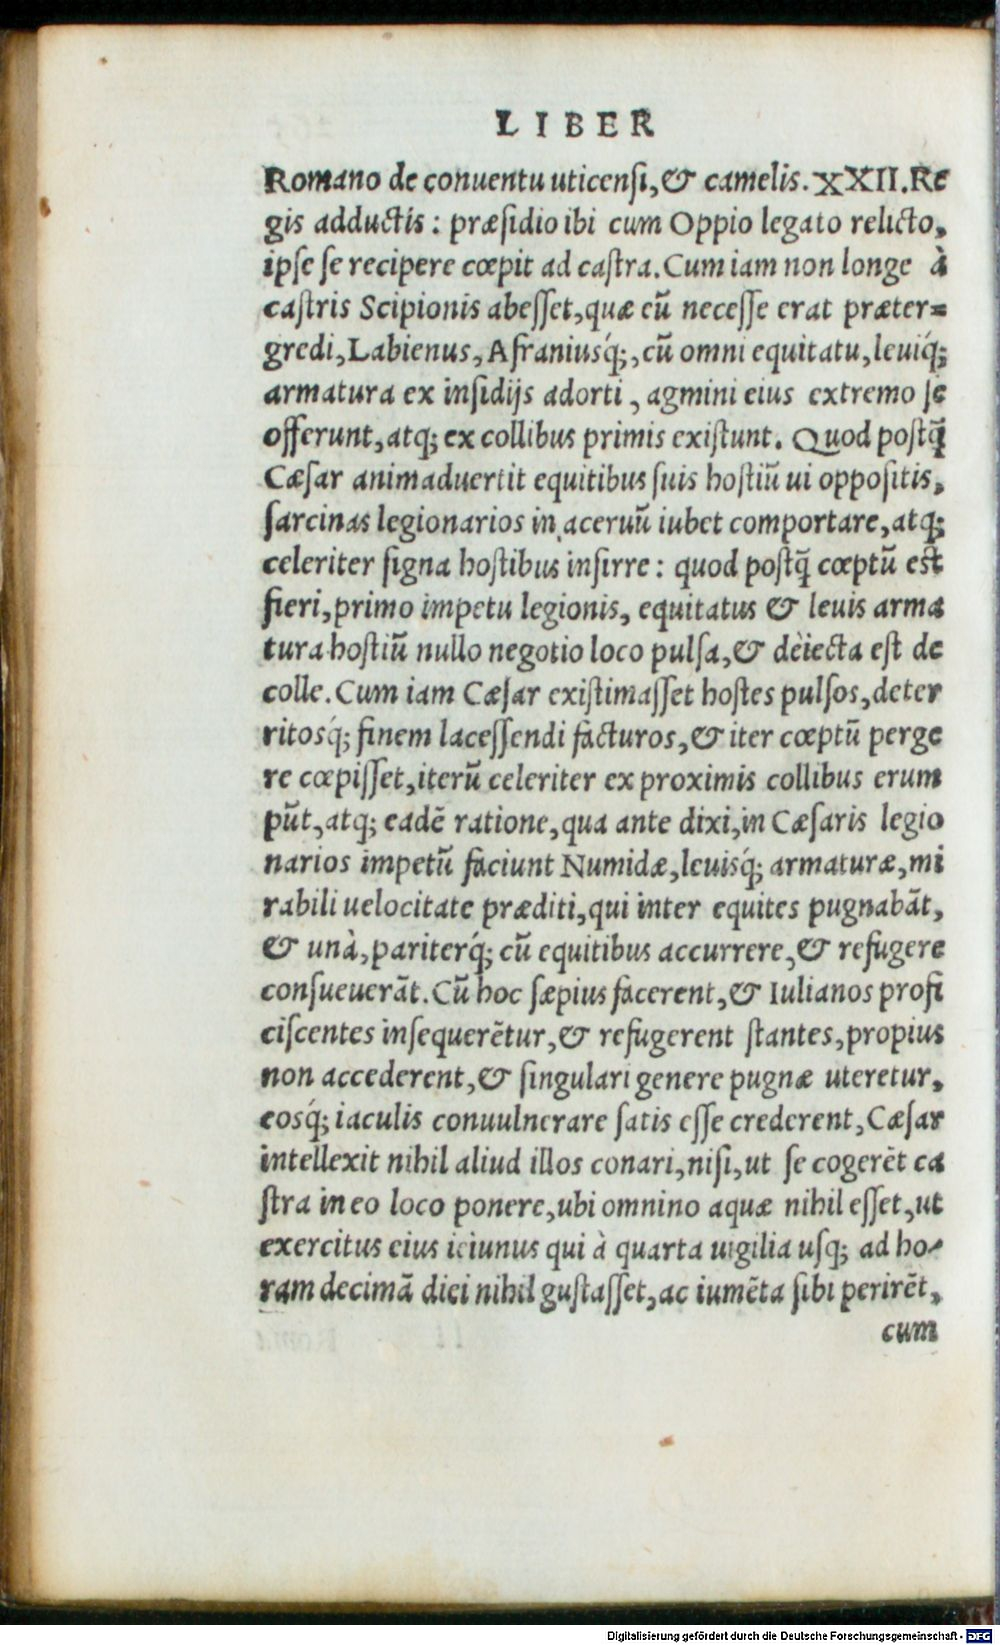 LIBER
Romano de conuentu uticensi,& camelis.XXII.Re
gis adductis: præsidio ibi cum Oppio legato relicto,
ipse se recipere cœpit ad castra.Cum iam non longe à
castris Scipionis abesset,quæ eũ necesse erat præter=
gredi,Labienus,Afraniusq́;,cũ omni equitatu,leuiq́;
armatura ex insidijs adorti, agmini eius extremo se
offerunt,atq; ex collibus primis existunt. Quod postq̃
Cæsar animaduertit equitibus suis hostiũ ui oppositis,
sarcinas legionarios in aceruũ iubet comportare,atq;
celeriter signa hostibus insirre: quod postq̃ cœptũ est
fieri,primo impetu legionis, equitatus & leuis arma
tura hostiũ nullo negotio loco pulsa,& dèiecta est de
colle.Cum iam Cæsar existimasset hostes pulsos,deter
ritosq́; finem lacessendi facturos,& iter cœptũ perge
re cœpisset,iterũ celeriter ex proximis collibus erum
pũt,atq; eadẽ ratione,qua ante dixi,in Cæsaris legio
narios impetũ faciunt Numidæ,leuisq́; armaturæ,mi
rabili uelocitate præditi,qui inter equites pugnabãt,
& unà,pariterq́; cũ equitibus accurrere,& refugere
consueuerãt.Cũ hoc sæpius facerent,& Iulianos profi
ciscentes insequerẽtur,& refugerent stantes,propius
non accederent,& singulari genere pugnæ uteretur,
eosq́; iaculis conuulnerare satis esse crederent,Cæsar
intellexit nihil aliud illos conari,nisi,ut se cogerẽt ca
stra in eo loco ponere,ubi omnino aquæ nihil esset,ut
exercitus eius ieiunus qui à quarta uigilia usq; ad ho-
ram decimã diei nihil gustasset,ac iumẽta sibi perirẽt,
cum
Digitalisierung gefördert durch die Deutsche Forschungsgemeinschaft - DFG